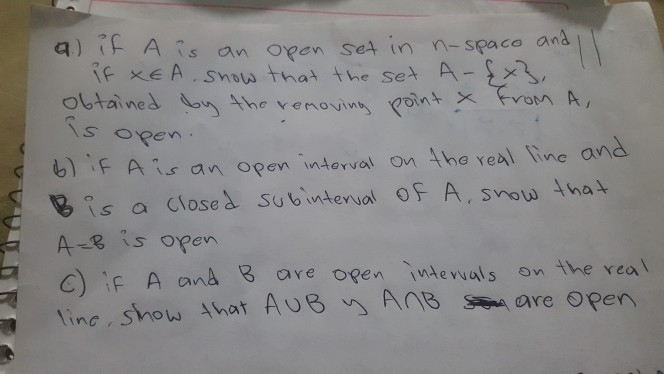 a.) if A is an open set in n-space and
if x∈A. show that the set A-{x},
obtained by the removing point x from A,
is open.
b) if A is an open interval on the real line and
B is a closed subinterval of A, show that
A-B is open
C) if A and B are open intervals on the real
line, show that A∪B y A∩B are open